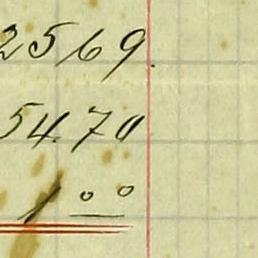 2569
54.70
1 00